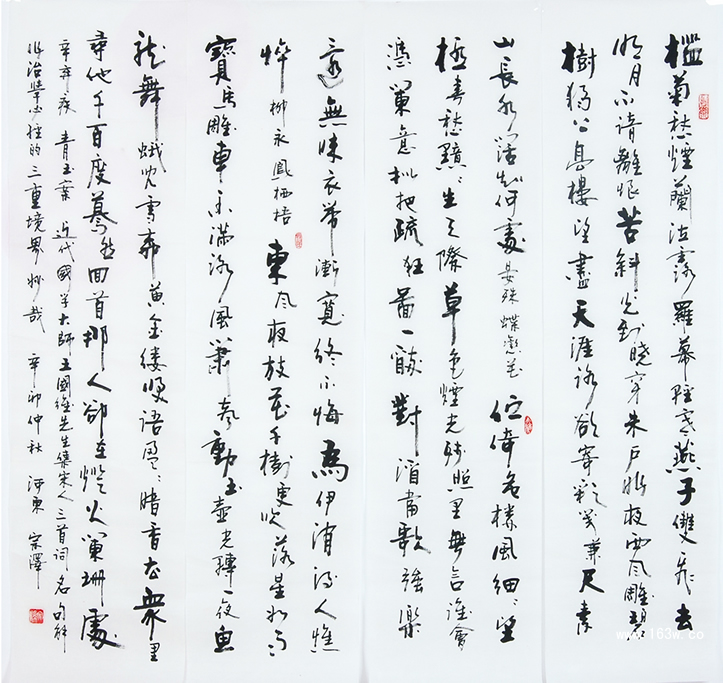 檻菊愁煙蘭泣露羅幕輕寒燕子雙飛去
明月不諳離恨苦斜光到曉穿朱戶昨夜西風雕碧
樹獨上高樓望盡天涯路欲寄彩箋兼尺素
山長水闊知何處 晏殊 蝶戀花 佇倚危樓風細〻望
極春愁黯〻生天際草色煙光殘照里無言誰會
憑闌意拟把疏狂圖一醉對酒當歌強樂
還無味衣帶漸寬終不悔為伊消得人憔
悴 柳永 鳳栖梧 東風夜放花千樹更吹落星如雨
寶馬雕車香滿路風簫聲動玉壺光轉一夜魚
龍舞蛾兒雪柳黃金縷笑語盈〻暗香去眾里
尋他千百度驀然回首那人卻在燈火闌珊處
辛弃疾 青玉案 近代國學大師王國維先生集宋人三首詞名句解
作治學必經的三重境界妙哉 辛卯仲秋 河東 宗澤
www.163w.com